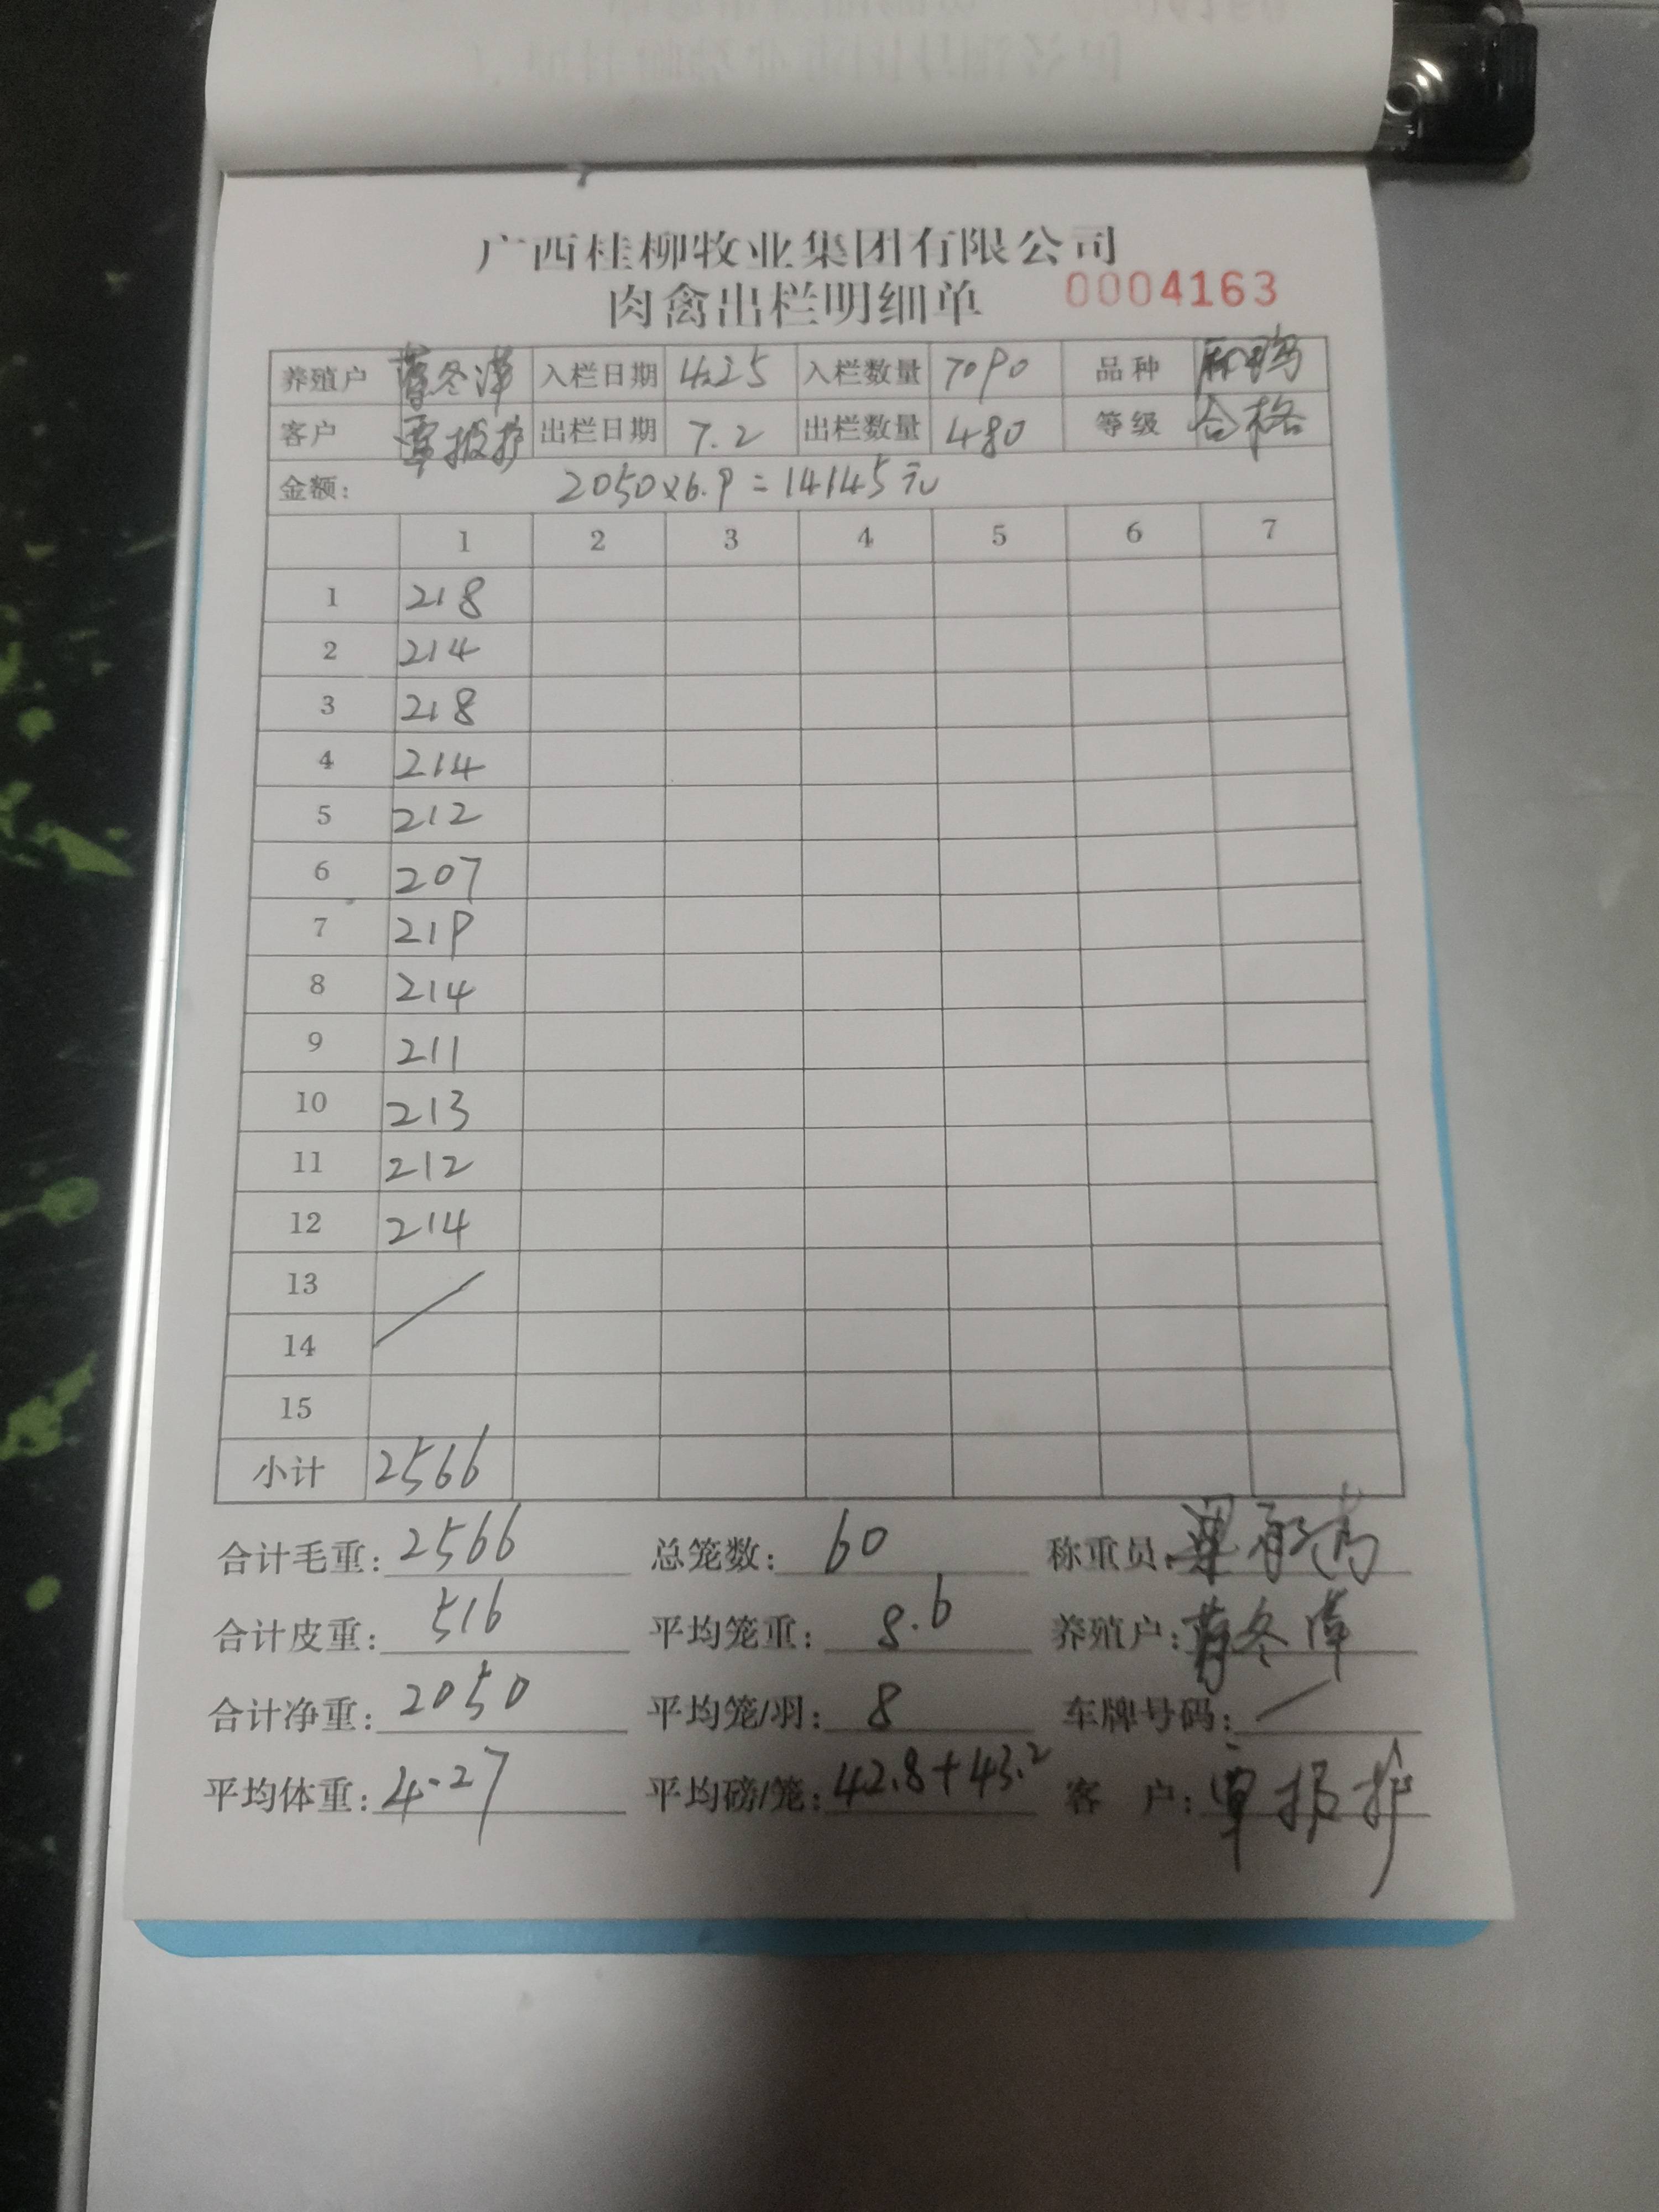 广西桂柳牧业集团有限公司
肉禽出栏明细单 0004163
养殖户 冬 入栏日期 4.25 入栏数量 7090 品种 麻鸭
客户 覃报护 出栏日期 7.2 出栏数量 480 等级 合格
金额: 2050×6.9=14145元
1 2 3 4 5 6 7
1 218
2 214
3 218
4 214
5 212
6 207
7 219
8 214
9 211
10 213
11 212
12 214
13
14
15
小计 2566
合计毛重: 2566 总笼数: 60 称重员:
合计皮重: 516 平均笼重: 8.6 养殖户: 冬
合计净重: 2050 平均笼/羽: 8 车牌号码:
平均体重: 4.27 平均磅/笼: 42.8+43.2 客 户: 覃报护